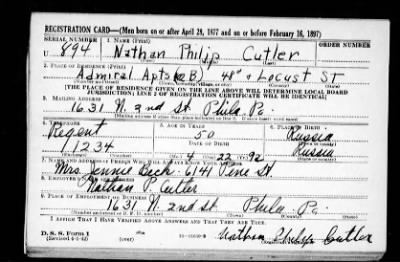 REGISTRATION CARD—(Men born on or after April 28, 1877 and on or before February 16, 1897)
SERIAL NUMBER 1. NAME (Print)
U 894 Nathan Philip Cutler
(First) (Middle) (Last)
2. PLACE OF RESIDENCE (Print)
Admiral Apts (2B) 48th & Locust St
[THE PLACE OF RESIDENCE GIVEN ON THE LINE ABOVE WILL DETERMINE LOCAL BOARD
JURISDICTION; LINE 2 OF REGISTRATION CERTIFICATE WILL BE IDENTICAL]
3. MAILING ADDRESS
1631 N. 2nd St. Phila. Pa.
4. TELEPHONE 5. AGE IN YEARS 6. PLACE OF BIRTH
Regent 50 Russia
DATE OF BIRTH
1234 4 22 1892 Russia
7. NAME AND ADDRESS OF PERSON WHO WILL ALWAYS KNOW YOUR ADDRESS
Mrs. Jennie Beck - 6141 Pine St
8. EMPLOYER'S NAME AND ADDRESS
Nathan P. Cutler
9. PLACE OF EMPLOYMENT OR BUSINESS
1631 N. 2nd St. Phila. Pa.
I AFFIRM THAT I HAVE VERIFIED ABOVE ANSWERS AND THAT THEY ARE TRUE.
D. S. S. Form 1
(Revised 4-1-42) (over) Nathan Philip Cutler